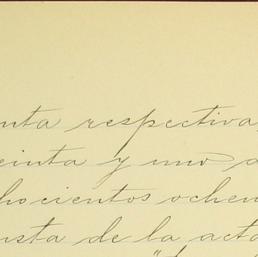 nta respectiva,
einta y uno d
hocientos ochen
usta de la acta